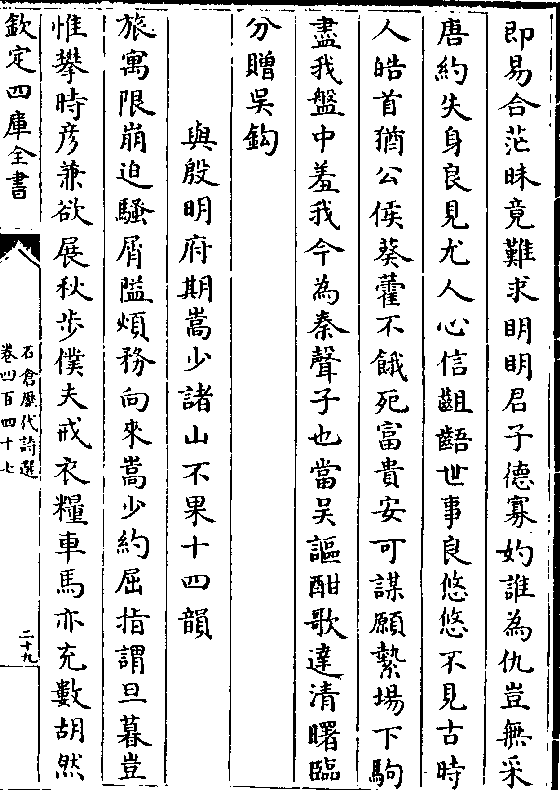 即易合茫昧竟難求明明君子德寡妁誰為仇豈無采
唐約失身良見尤人心信齟齬世事良悠悠不見古時
人皓首猶公侯葵藿不餓死富貴安可謀願縶場下駒
盡我盤中羞我今為秦聲子也當吴謳酣歌達清曙臨
分贈吴鈎
與殷明府期嵩少諸山不果十四韻
旅寓限崩迫騷屑隘煩務向來嵩少約屈指謂旦暮豈
惟攀時彦兼欲展秋步僕夫戒衣糧車馬亦充數胡然
欽定四庫全書
石倉歷代詩選
卷四百四十七
二十九